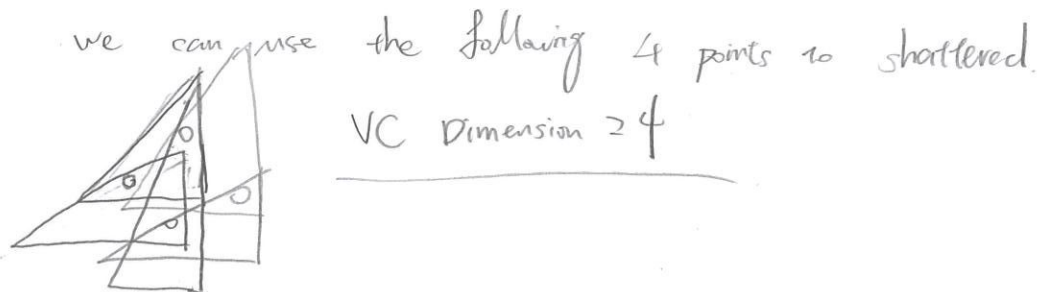 we can use the following 4 points to shattered.
VC Dimension ≥ 4